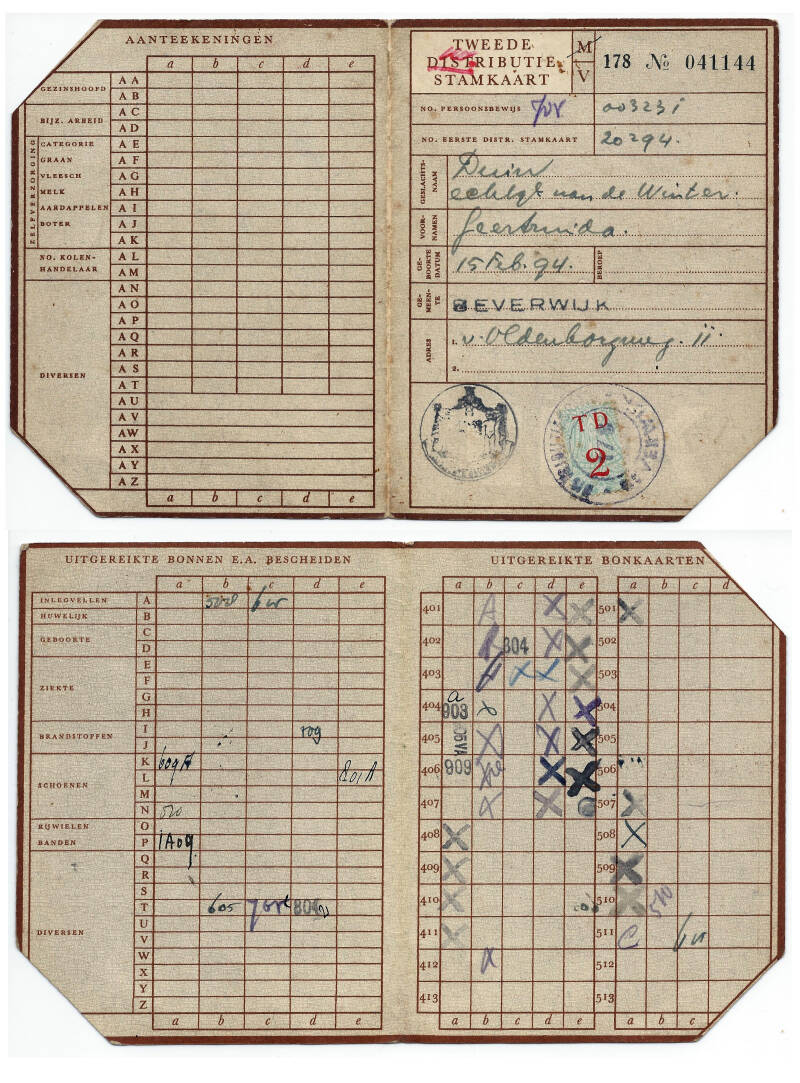 AANTEEKENINGEN
a b c d e
GEZINSHOOFD
BIJZ. ARBEID
ZELFVERZORGING
CATEGORIE
GRAAN
VLEESCH
MELK
AARDAPPELEN
BOTER
NO. KOLEN-
HANDELAAR
DIVERSEN
AA
AB
AC
AD
AE
AF
AG
AH
AI
AJ
AK
AL
AM
AN
AO
AP
AQ
AR
AS
AT
AU
AV
AW
AX
AY
AZ
a b c d e
TWEEDE
DISTRIBUTIE
STAMKAART
M
V
178 № 041144
NO. PERSOONSBEWIJS 003231
NO. EERSTE DISTR. STAMKAART 20294.
GESLACHTS-
NAAM
Duin
echtgt van de Winter.
VOOR-
NAMEN
Geertruida.
GE-
BOORTE
DATUM
15 Feb. 94.
BEROEP
GE-
MEEN-
TE
BEVERWIJK
ADRES
1. v. Oldenborgweg. 11
2.
TD
2
UITGEREIKTE BONNEN E.A. BESCHEIDEN
a b c d e
INLEGVELLEN A
HUWELIJK B
GEBOORTE C
D
ZIEKTE E
F
G
H
BRANDSTOFFEN I
J
SCHOENEN K
L
M
N
RIJWIELEN O
BANDEN P
DIVERSEN Q
R
S
T
U
V
W
X
Y
Z
609A
801A
1A09
605
804
a b c d e
UITGEREIKTE BONKAARTEN
a b c d e a b c d
401 501
402 304
403
404 903 504
405 505
406 909 506
407 507
408 508
409 509
410 510
411 511
412
413 513
a b c d e a b c d